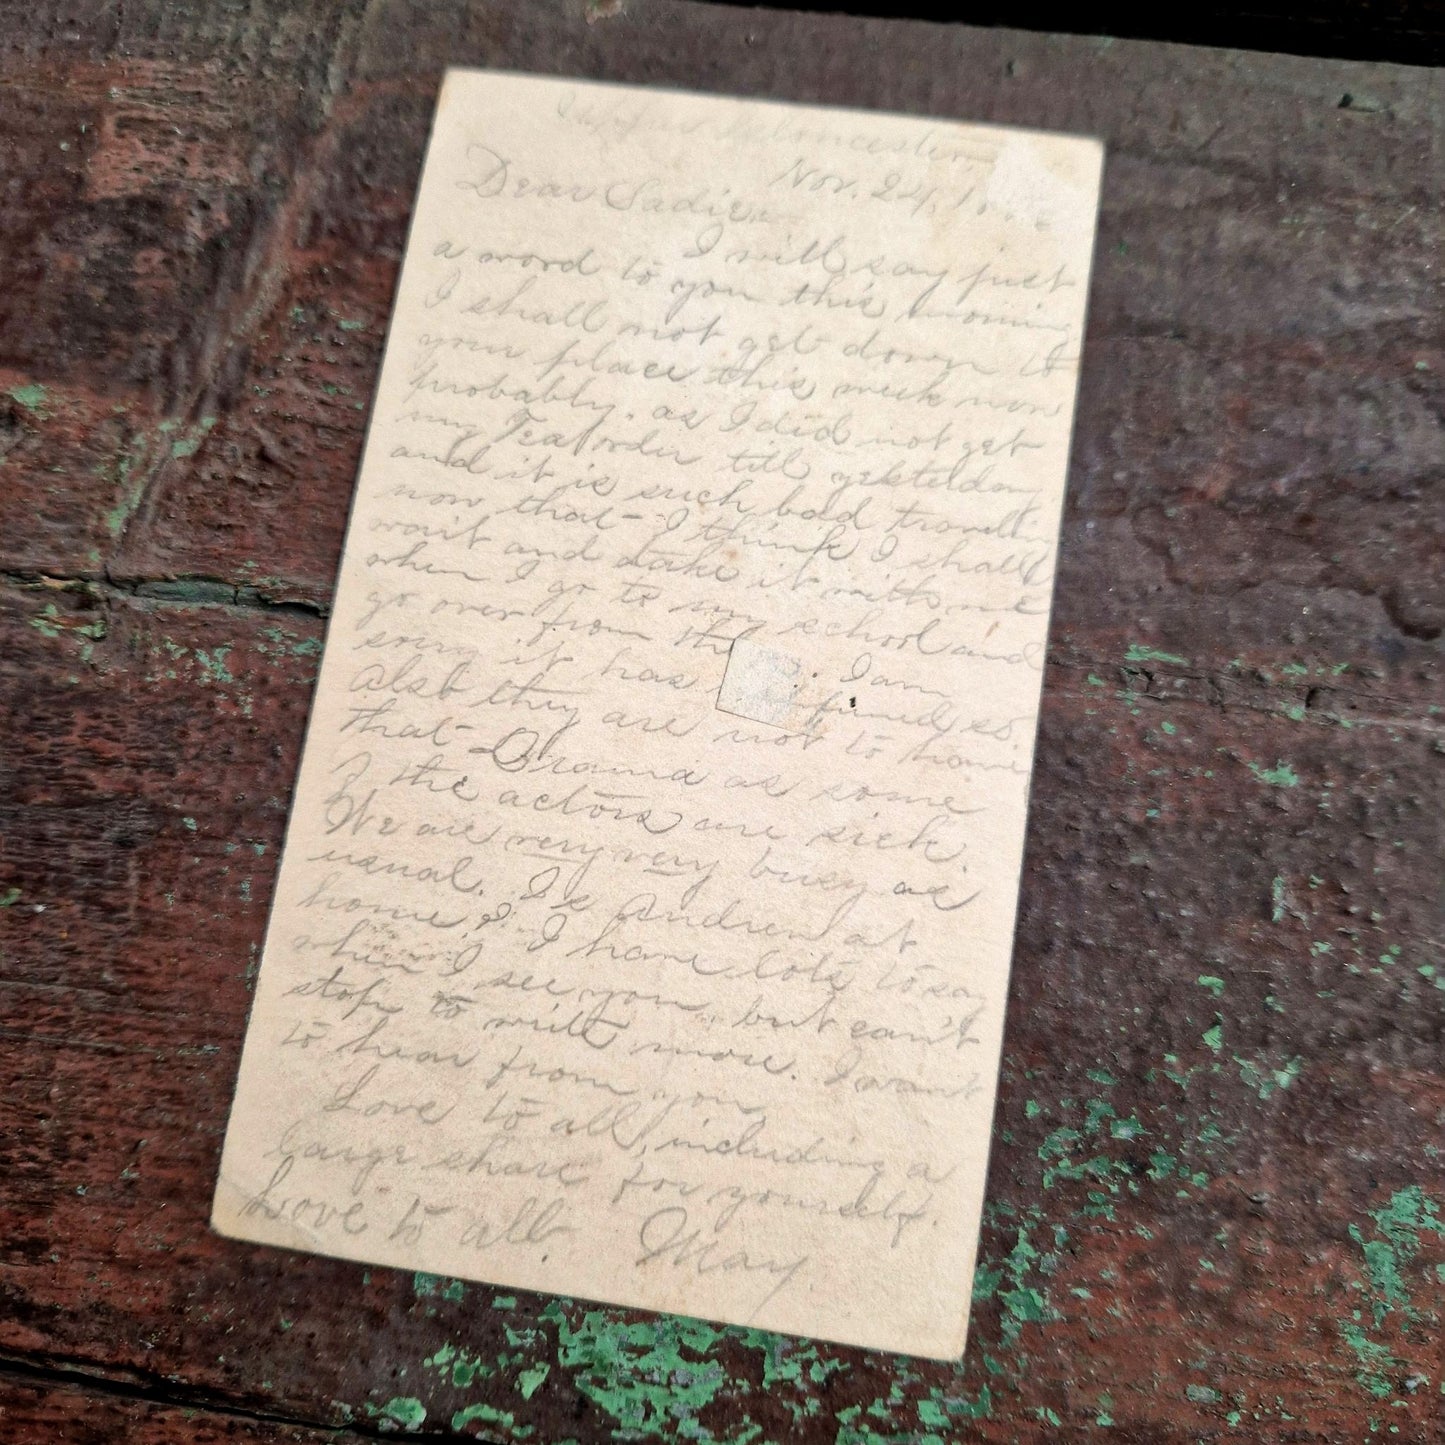 Nov. 24, 
Dear Sadie:
I will say just
a word to you this morning
I shall not get down to
your place this week now
probably, as I did not get
my Tea order till yesterday
and it is such bad travelling
now that I think I shall
wait and take it with me
when I go to my school and
go over from I am
sorry it has so
also they are not to have
that Drama as some
of the actors are sick.
We are very very busy as
usual. Is Andrew at
home? I have lots to say
when I see you, but can't
stop to write more. I want
to hear from you
Love to all, including a
large share for yourself.
Love to all. May.